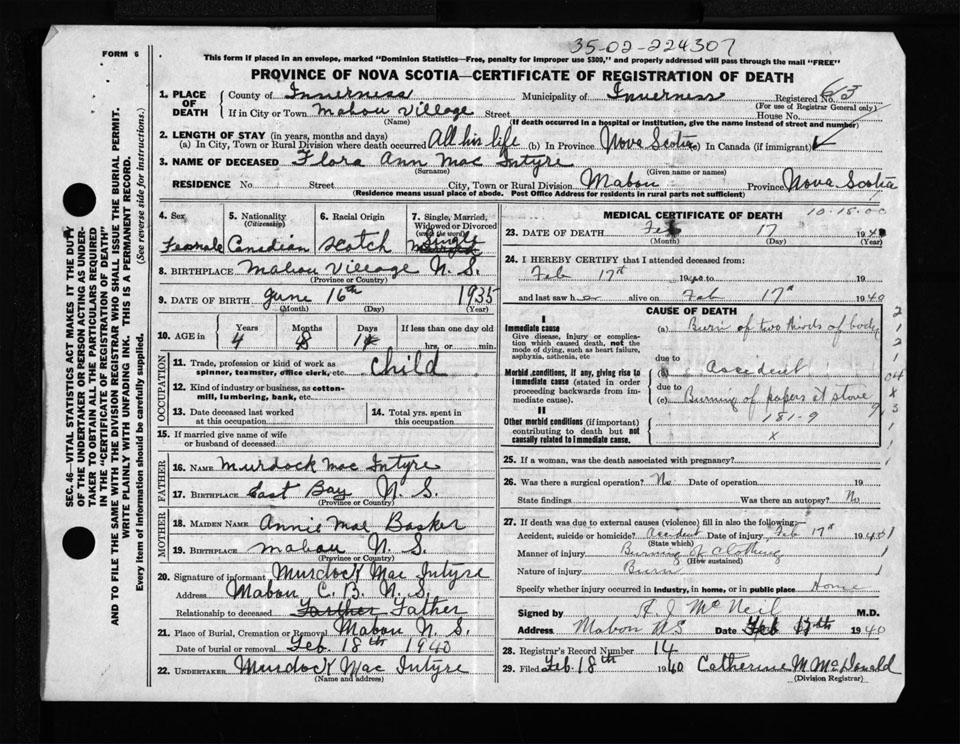 FORM 6
35-02-224307
This form if placed in an envelope, marked "Dominion Statistics—Free, penalty for improper use $300," and properly addressed will pass through the mail "FREE"
PROVINCE OF NOVA SCOTIA—CERTIFICATE OF REGISTRATION OF DEATH
1. PLACE OF DEATH County of Inverness Municipality of Inverness Registered No. 63
(For use of Registrar General only)
If in City or Town Mabou Village Street House No.
(Name) (If death occurred in a hospital or institution, give the name instead of street and number)
2. LENGTH OF STAY (in years, months and days)
(a) In City, Town or Rural Division where death occurred All his life (b) In Province Nova Scotia (c) In Canada (if immigrant)
3. NAME OF DECEASED Flora Ann Mac Intyre
(Surname) (Given name or names)
RESIDENCE No Street City, Town or Rural Division Mabou Province Nova Scotia
(Residence means usual place of abode. Post Office Address for residents in rural parts not sufficient)
4. Sex 5. Nationality (Citizenship) 6. Racial Origin 7. Single, Married, Widowed or Divorced (write the word)
Female Canadian Scotch Single
8. BIRTHPLACE Mabou Village N. S.
(Province or Country)
9. DATE OF BIRTH June 16th 1935
(Month) (Day) (Year)
10. AGE in Years Months Days If less than one day
4 8 1 hrs. or min.
OCCUPATION
11. Trade, profession or kind of work as spinner, teamster, office clerk, etc. Child
12. Kind of industry or business, as cotton-mill, lumbering, bank, etc.
13. Date deceased last worked at this occupation 14. Total yrs. spent in this occupation
15. If married give name of wife or husband of deceased
FATHER
16. NAME Murdock Mac Intyre
17. BIRTHPLACE East Bay N. S.
(Province or Country)
MOTHER
18. MAIDEN NAME Annie Mae Basker
19. BIRTHPLACE Mabou N. S.
(Province or Country)
20. Signature of informant Murdock Mac Intyre
Address Mabou C. B. N. S.
Relationship to deceased Farther Father
21. Place of Burial, Cremation or Removal Mabou N. S.
Date of burial or removal Feb. 18th 1940
22. UNDERTAKER Murdock Mac Intyre
(Name and address)
MEDICAL CERTIFICATE OF DEATH 10-15-00
23. DATE OF DEATH Feb 17 1940
(Month) (Day) (Year)
24. I HEREBY CERTIFY that I attended deceased from:
Feb 17th 1940 to 19
and last saw her alive on Feb 17th 1940
CAUSE OF DEATH
I
Immediate cause (a) Burn of two thirds of body
Give disease, injury or complication which caused death, not the mode of dying, such as heart failure, asphyxia, asthenia, etc
due to
Morbid conditions, if any, giving rise to immediate cause (stated in order proceeding backwards from immediate cause). (b) Accident
due to
(c) Burning of papers at stove
II
Other morbid conditions (if important) contributing to death but not causally related to immediate cause.
181-9
x
25. If a woman, was the death associated with pregnancy?
26. Was there a surgical operation? No Date of operation 19
State findings Was there an autopsy? No
27. If death was due to external causes (violence) fill in also the following:—
Accident, suicide or homicide? Accident Date of injury Feb 17th 1940
(State which)
Manner of injury Burning of clothing
(How sustained)
Nature of injury Burn
Specify whether injury occurred in industry, in home, or in public place Home
Signed by A J McNeil M.D.
Address Mabou NS Date Feb 17th 1940
28. Registrar's Record Number 14
29. Filed Feb 18th 1940 Catherine M McDonald
(Division Registrar)
SEC. 46—VITAL STATISTICS ACT MAKES IT THE DUTY
OF THE UNDERTAKER OR PERSON ACTING AS UNDERTAKER TO OBTAIN ALL THE PARTICULARS REQUIRED
IN THE "CERTIFICATE OF REGISTRATION OF DEATH"
AND TO FILE THE SAME WITH THE DIVISION REGISTRAR WHO SHALL ISSUE THE BURIAL PERMIT.
WRITE PLAINLY WITH UNFADING INK. THIS IS A PERMANENT RECORD.
Every item of information should be carefully supplied. (See reverse side for instructions.)